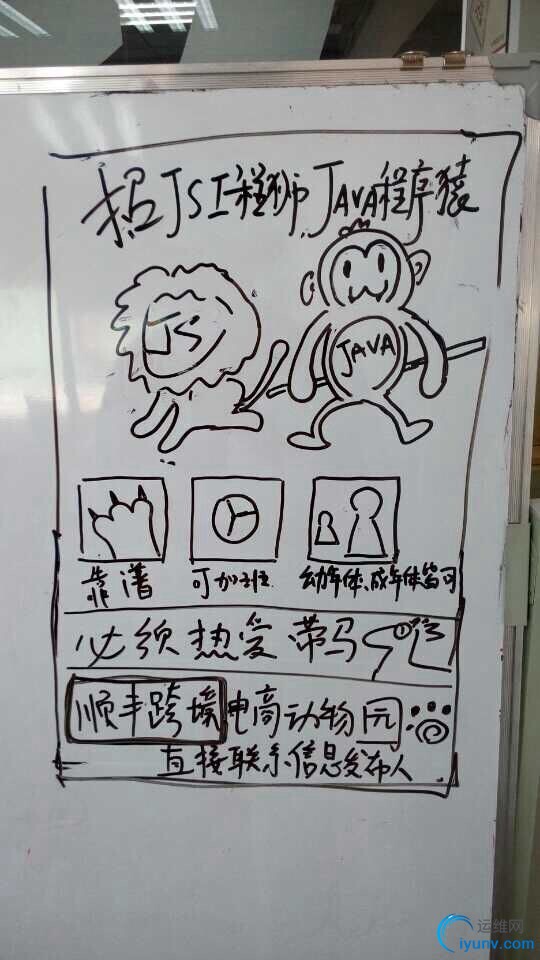 招JS工程狮 JAVA程序猿
JS
JAVA
靠谱
可加班
幼年体、成年体皆可
必须热爱带马
顺丰跨境电商动物园
直接联系信息发布人
运维网
iyunv.com